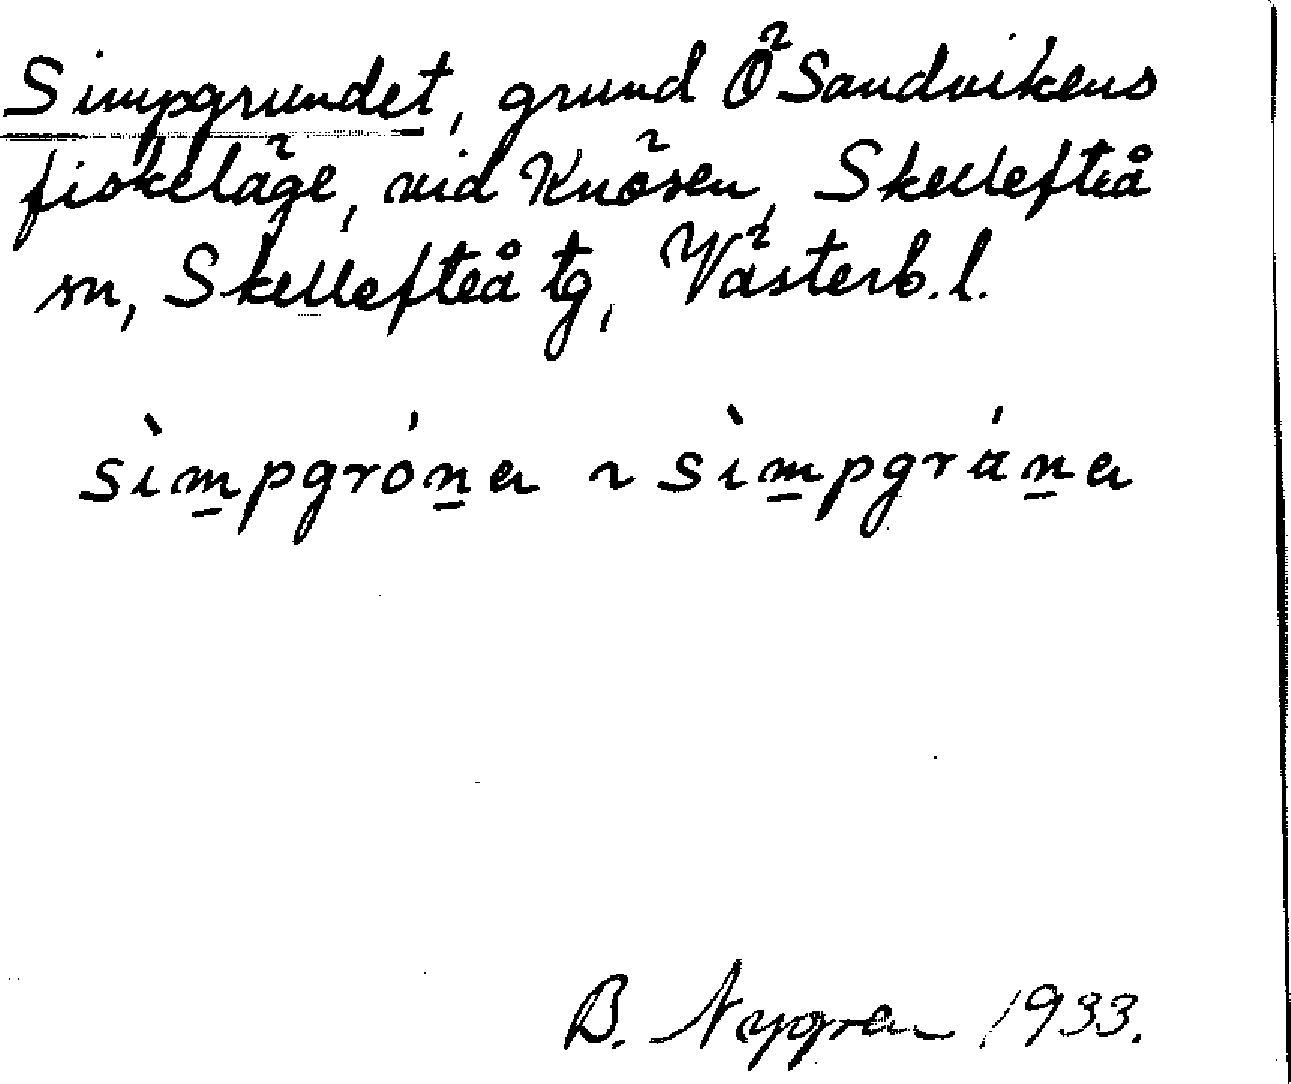 Simpgrundet, grund Ö Sandvikens
fiskeläge, vid Knösen, Skellefteå
m, Skellefteå tg, Västerb. l.
sìm̲pgrón̲ə ~ sìm̲pgrán̲ə
B. Nygren 1933.